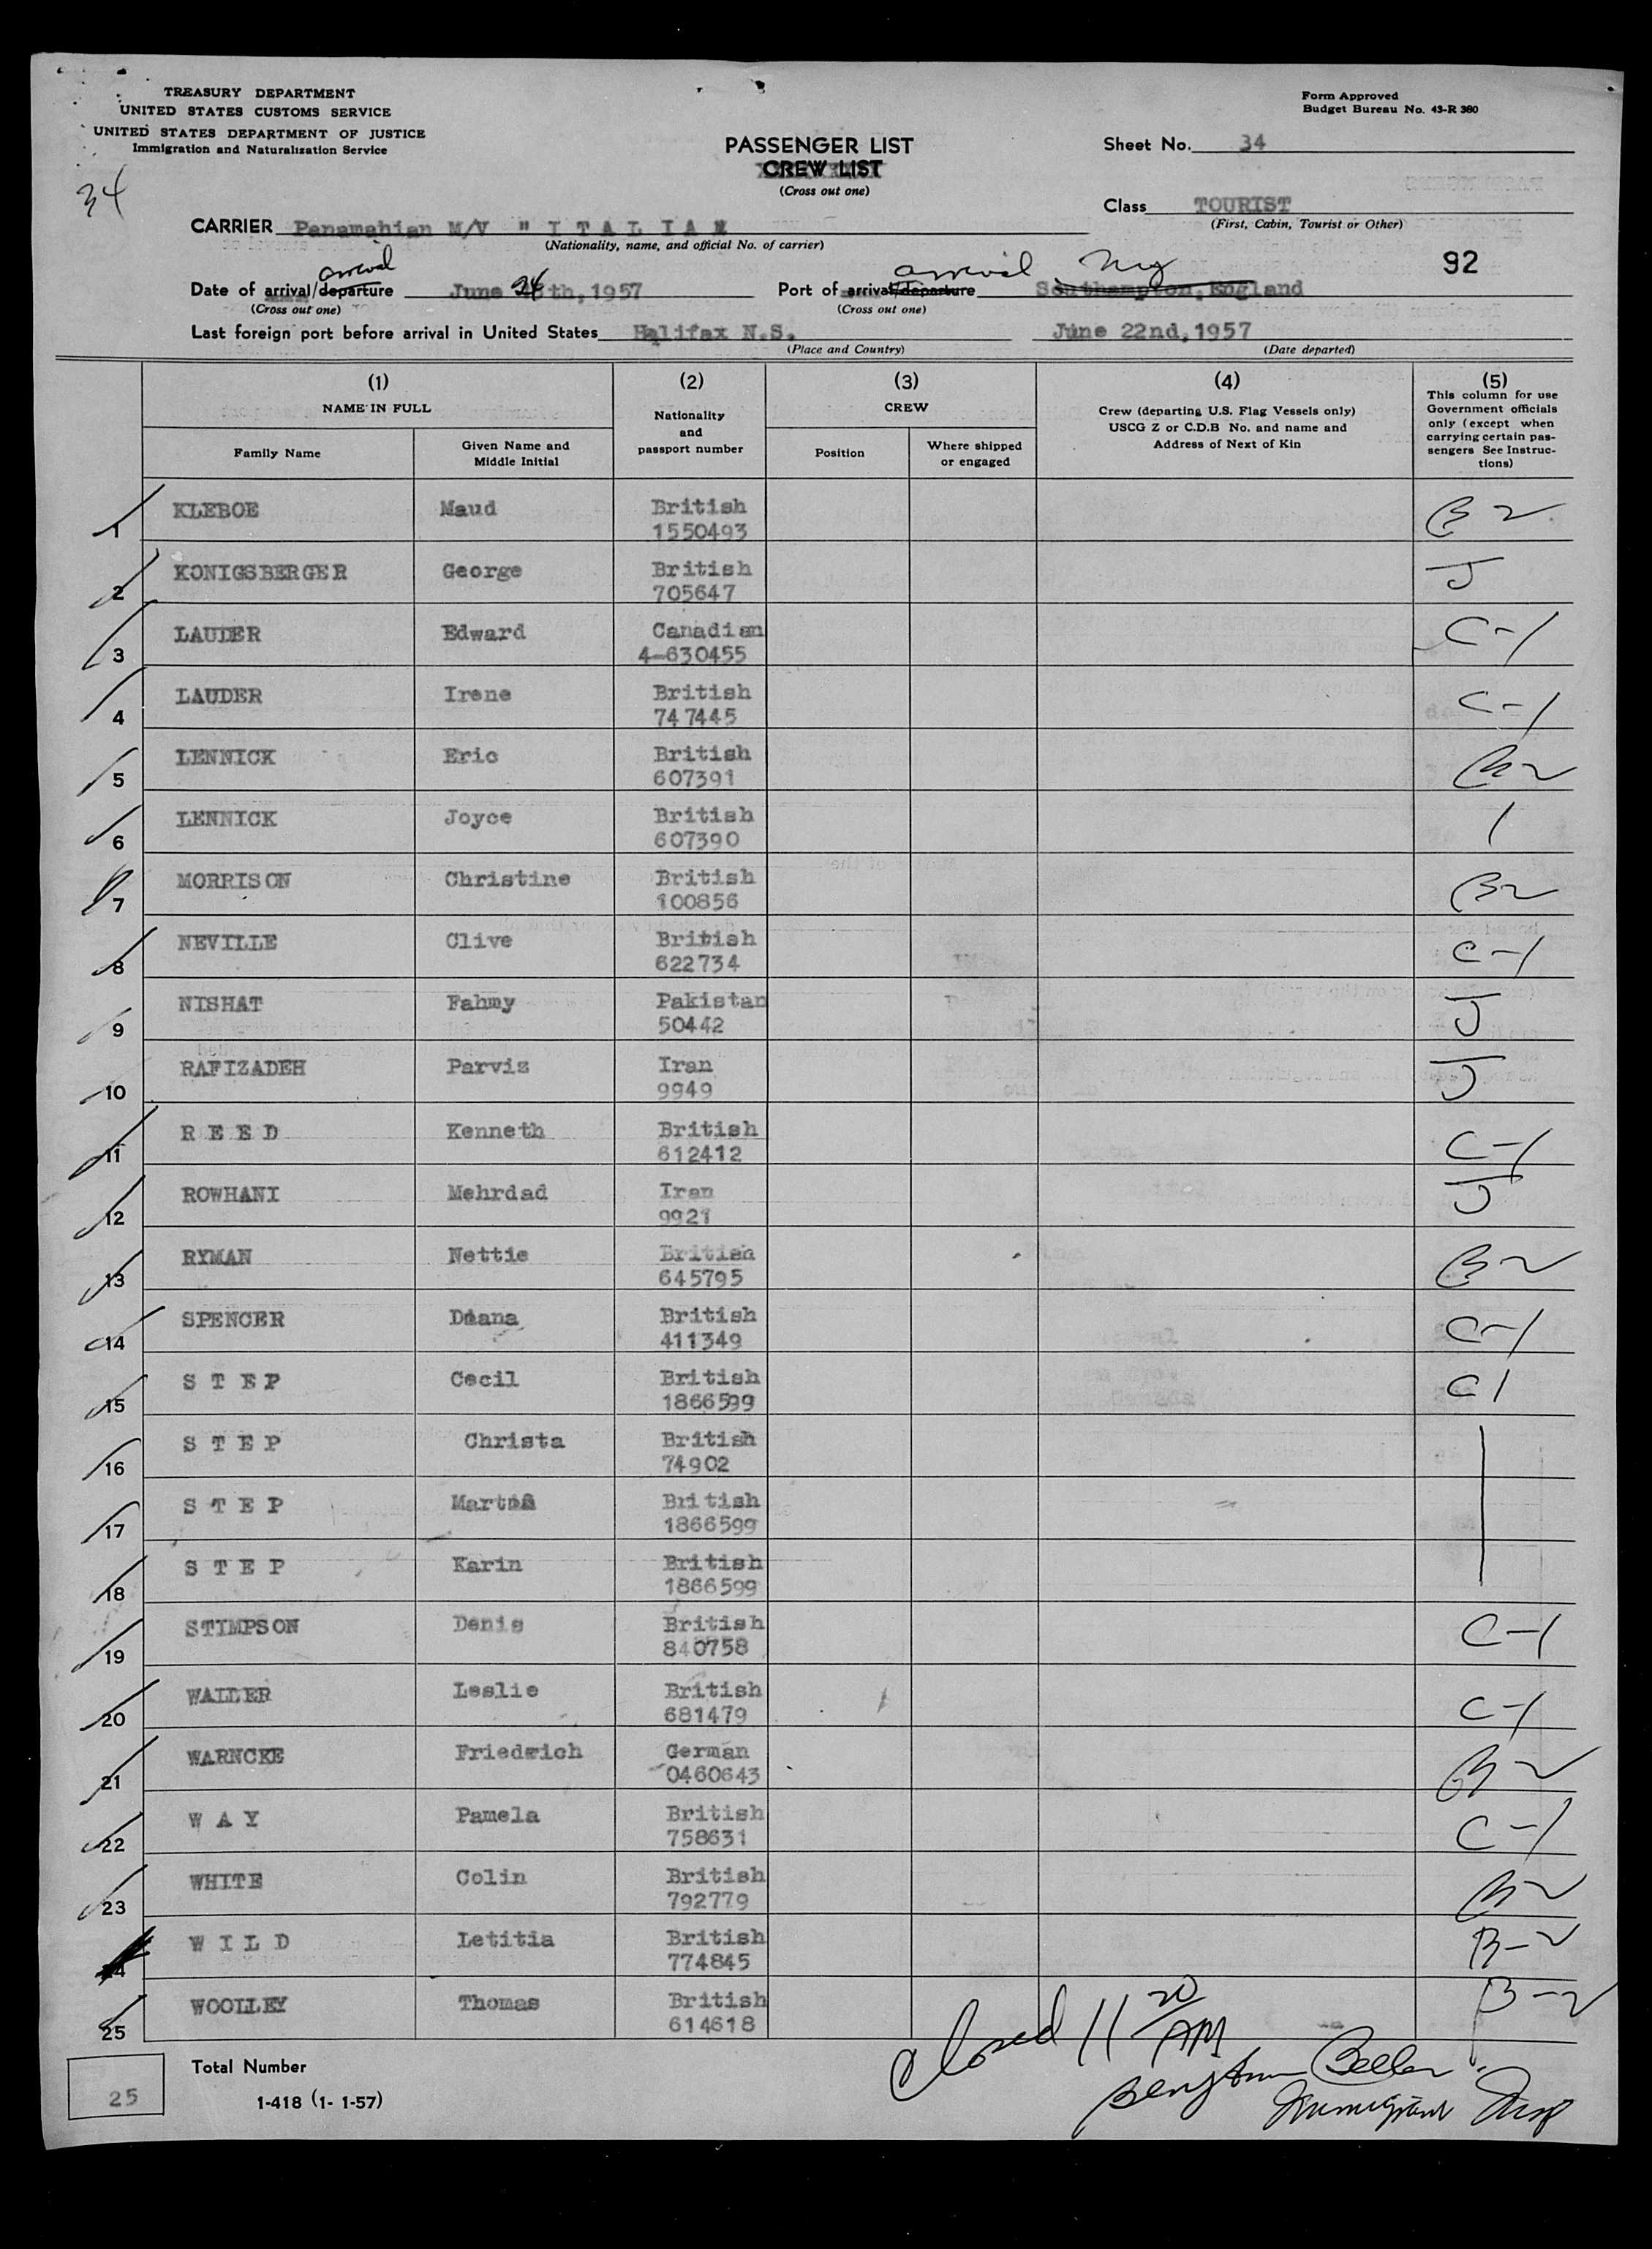 TREASURY DEPARTMENT
UNITED STATES CUSTOMS SERVICE
UNITED STATES DEPARTMENT OF JUSTICE
Immigration and Naturalization Service
34
Form Approved
Budget Bureau No. 43-R 380
PASSENGER LIST
CREW LIST
(Cross out one)
Sheet No. 34
Class TOURIST
(First, Cabin, Tourist or Other)
CARRIER Panamahian M/V " I T A L I A "
(Nationality, name, and official No. of carrier)
92
arrival
arrival NY
Date of arrival/departure June 24th, 1957
Port of arrival/departure Southampton, England
(Cross out one)
(Cross out one)
Last foreign port before arrival in United States Halifax N.S. June 22nd, 1957
(Place and Country)
(Date departed)
(1)
NAME IN FULL
Family Name
Given Name and
Middle Initial
(2)
Nationality
and
passport number
(3)
CREW
Position
Where shipped
or engaged
(4)
Crew (departing U.S. Flag Vessels only)
USCG Z or C.D.B No. and name and
Address of Next of Kin
(5)
This column for use
Government officials
only (except when
carrying certain pas-
sengers See Instruc-
tions)
1 KLEBOE Maud British B2
1550493
2 KONIGSBERGER George British J
705647
3 LAUDER Edward Canadian C-1
4-630455
4 LAUDER Irene British C-1
747445
5 LENNICK Eric British B2
607391
6 LENNICK Joyce British
607390
7 MORRISON Christine British B2
100856
8 NEVILLE Clive British C-1
622734
9 NISHAT Fahmy Pakistan J
50442
10 RAFIZADEH Parviz Iran J
9949
11 R E E D Kenneth British C-1
612412
12 ROWHANI Mehrdad Iran J
9921
13 RYMAN Nettie British B2
645795
14 SPENCER Diana British C-1
411349
15 S T E P Cecil British C1
1866599
16 S T E P Christa British
74902
17 S T E P British
1866599
18 S T E P Karin British
1866599
19 STIMPSON Denis British C-1
840758
20 WALLER Leslie British C-1
681479
21 WARNCKE Friedrich German B2
0460643
22 W A Y Pamela British C-1
758631
23 WHITE Colin British B2
792779
24 W I L D Letitia British B-2
774845
25 WOOLLEY Thomas British B-2
614618
Closed 11 20 AM
Benjamin
Immigrant Insp
25
Total Number
1-418 (1- 1-57)